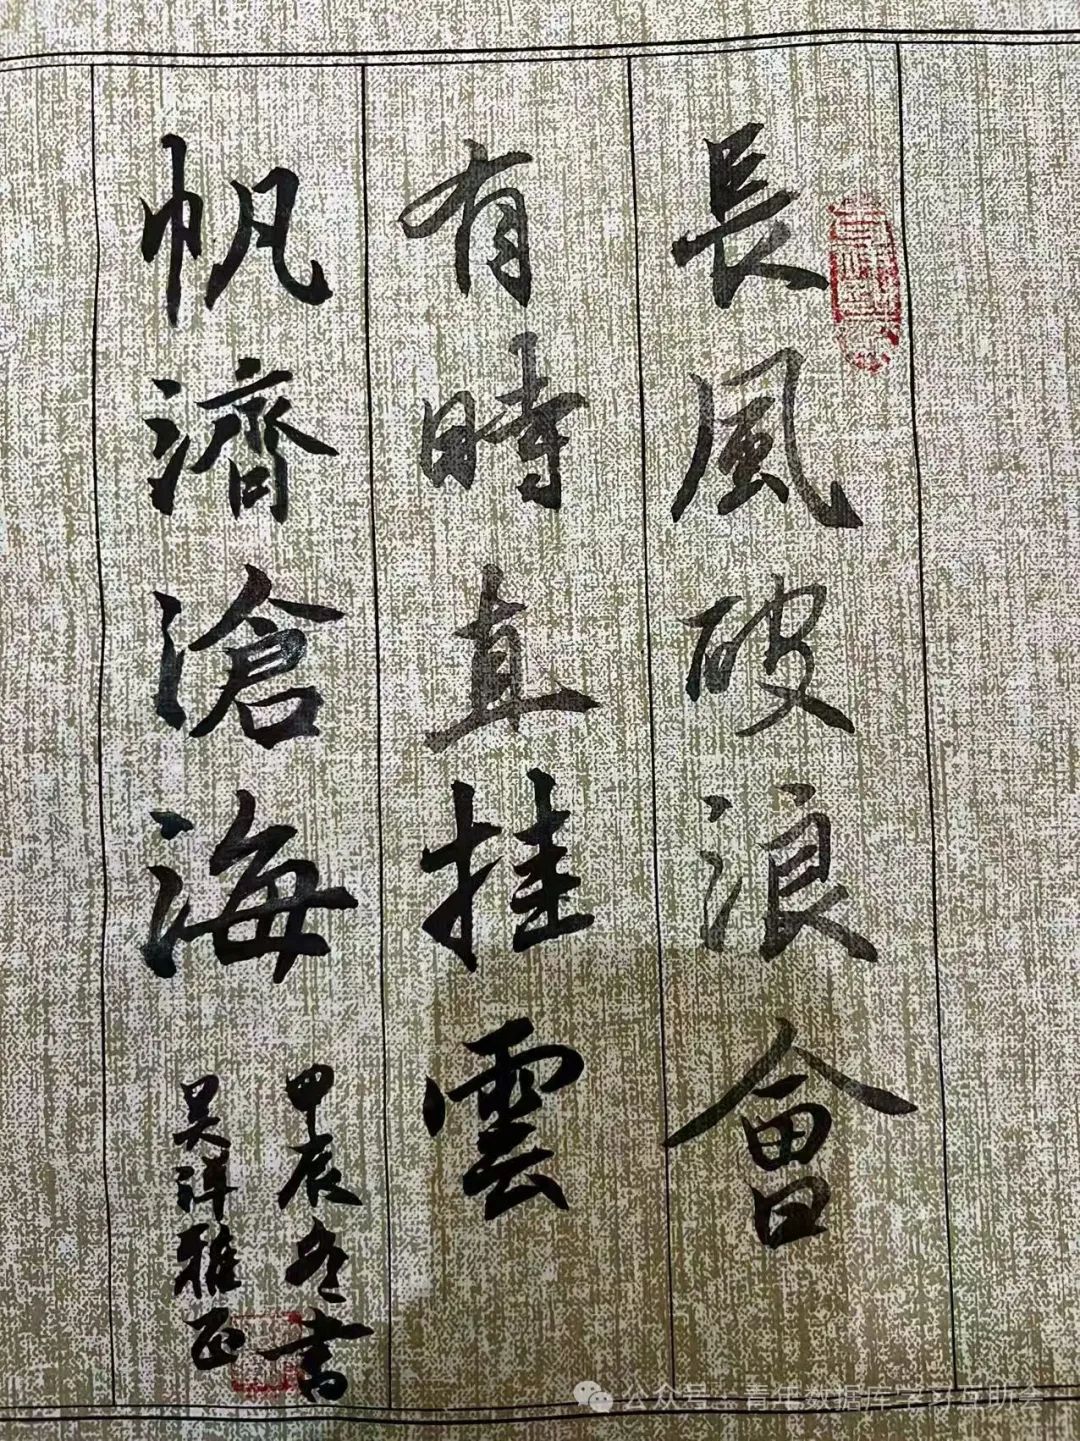 長風破浪會
有時直挂雲
帆濟滄海
甲辰冬書
吴洋雅正
公众号 · 青年数据库学习互助会